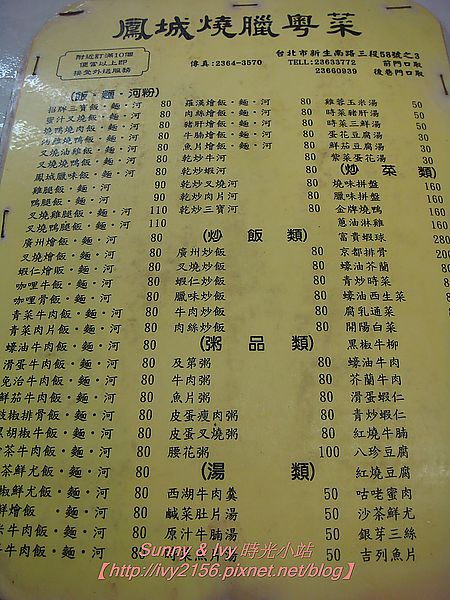 鳳城燒臘粵菜
附近訂滿10個
便當以上即
接受外送服務
傳真:2364-3570
台北市新生南路三段58號之3
TEL:23633772 前門口取
23660939 後巷門口取
(飯·麵·河粉)
招牌三寶飯·麵·河 80
蜜汁叉燒飯·麵·河 80
燒鴨燒肉飯·麵·河 80
燒鴨飯·麵·河 80
叉燒油雞飯·麵·河 80
叉燒燒鴨飯·麵·河 80
鳳城臘味飯·麵·河 80
雞腿飯·麵·河 90
鴨腿飯·麵·河 90
叉燒雞腿飯·麵·河 110
叉燒鴨腿飯·麵·河 110
廣州燴飯·麵·河 80
叉燒燴飯·麵·河 80
蝦仁燴飯·麵·河 80
咖哩牛飯·麵·河 80
咖哩骨飯·麵·河 80
青菜牛肉飯·麵·河 80
青菜肉片飯·麵·河 80
蠔油牛肉飯·麵·河 80
滑蛋牛肉飯·麵·河 80
免治牛肉飯·麵·河 80
鮮茄牛肉飯·麵·河 80
豉椒排骨飯·麵·河 80
黑胡椒牛飯·麵·河 80
茶牛飯·麵·河 80
茶鮮尤飯·麵·河 80
椒鮮尤飯·麵·河 80
鮮燴飯·麵·河 80
牛肉飯·麵·河 80
牛肉飯·麵·河 80
羅漢燴飯·麵·河 80
肉絲燴飯·麵·河 80
豬肝燴飯·麵·河 80
牛腩燴飯·麵·河 80
魚片燴飯·麵·河 80
乾炒牛河 80
乾炒蝦河 80
乾炒叉燒河 80
乾炒肉片河 80
乾炒三寶河 80
(炒飯類)
廣州炒飯 80
叉燒炒飯 80
蝦仁炒飯 80
臘味炒飯 80
牛肉炒飯 80
肉絲炒飯 80
(粥品類)
及第粥 80
牛肉粥 80
魚片粥 80
皮蛋瘦肉粥 80
皮蛋叉燒粥 80
腰花粥 100
(湯類)
西湖牛肉羹 50
鹹菜肚片湯 50
原汁牛腩湯 50
魚片湯 50
雞蓉玉米湯 50
時菜豬肝湯 50
時菜三鮮湯 50
蛋花豆腐湯 30
鮮茄豆腐湯 30
紫菜蛋花湯 30
(炒菜類)
燒味拼盤 160
臘味拼盤 160
金牌燒鴨 160
蔥油淋雞 160
富貴蝦球 280
京都排骨 200
蠔油芥蘭
青炒時菜
蠔油西生菜
腐乳通菜
開陽白菜
黑椒牛柳
蠔油牛肉
芥蘭牛肉
滑蛋蝦仁
青炒蝦仁
紅燒牛腩
八珍豆腐
紅燒豆腐
咕咾蜜肉
沙茶鮮尤
銀芽三絲
吉列魚片
Sunny & Ivy 時光小站
【http://ivy2156.pixnet.net/blog】